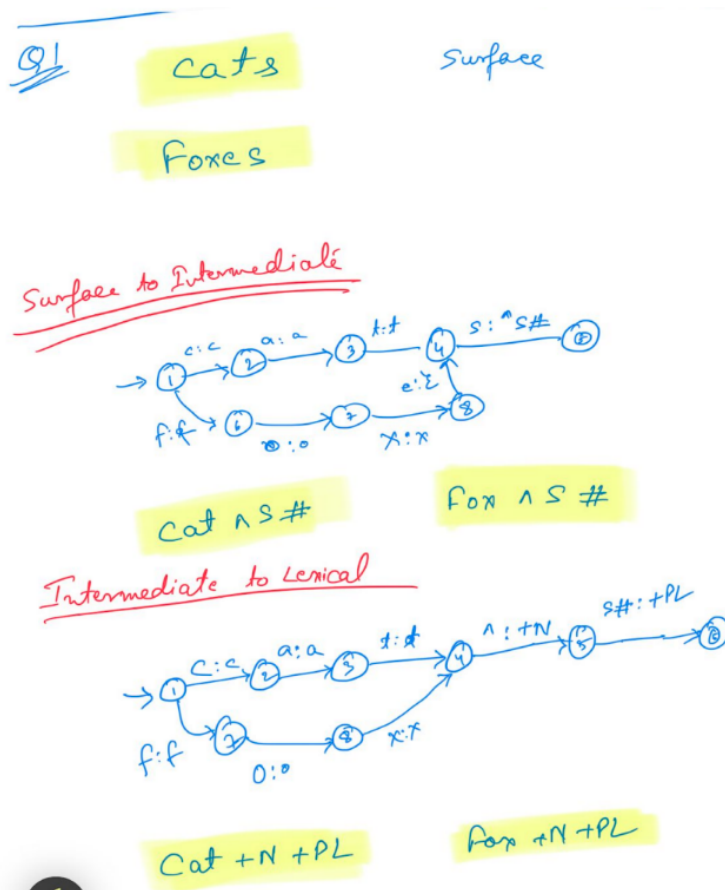 Q1 Cats Surface
Foxes
Surface to Intermediate
c:c a:a t:t s:^s#
1 2 3 4
f:f 6 o:o 7 x:x 8 e:ε
Cat ^ S # Fox ^ S #
Intermediate to Lexical
C:c a:a t:t ^:+N s#:+PL
1 2 3 4 5 6
f:f 7 O:o 8 x:x
Cat +N +PL Fox +N +PL